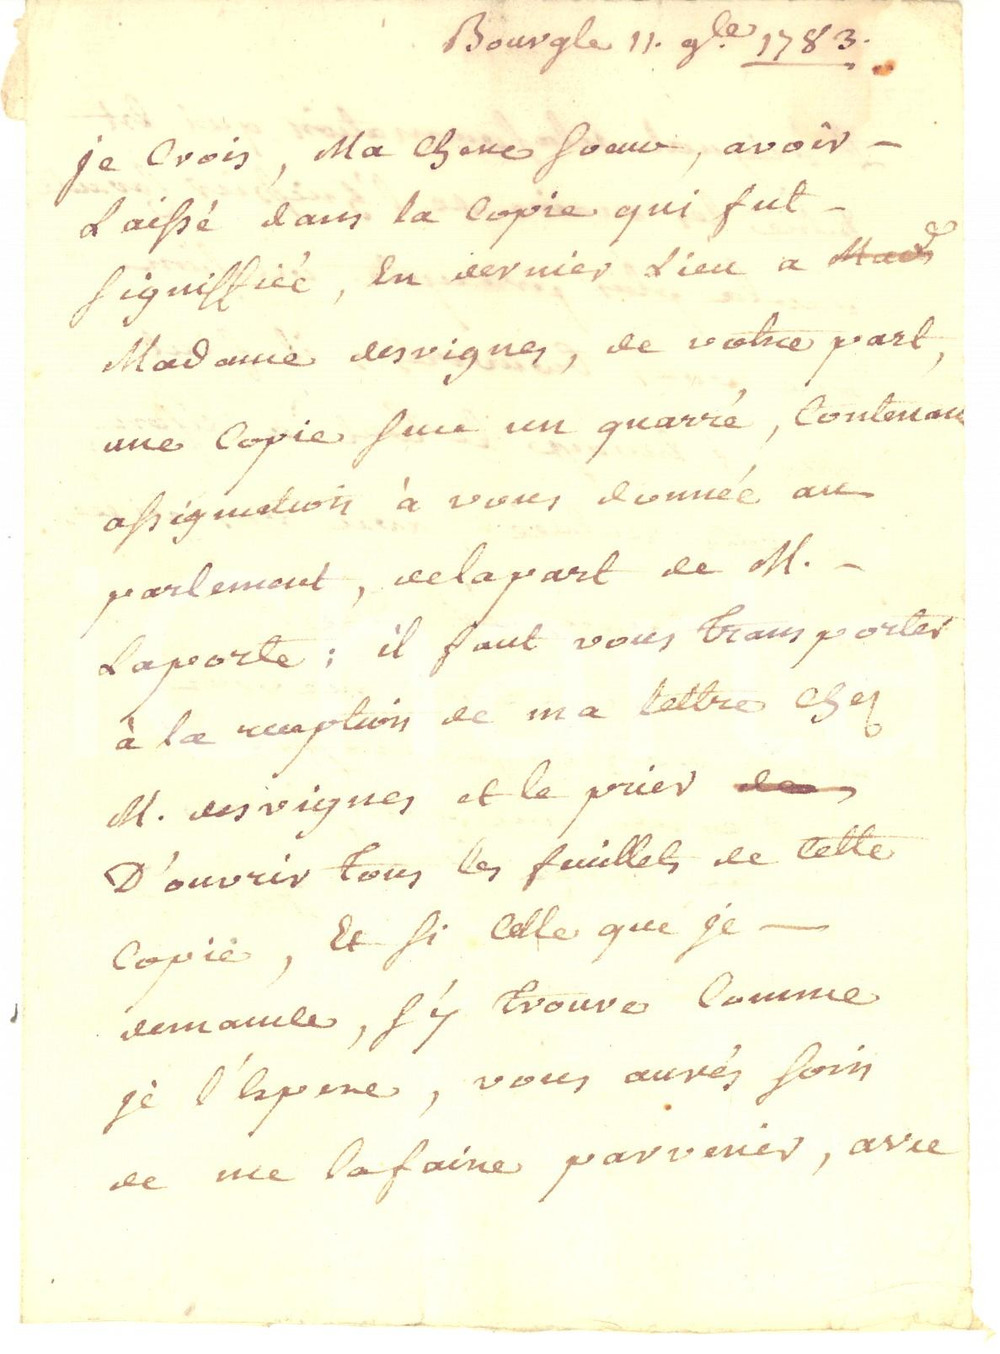 Bourgle 11. 9bre 1783.
je Crois, Ma Chere Soeur, avoir -
Laissé dans la Copie qui fut -
signiffiée, En dernier Lieu a Made
Madame desvignes, de votre part,
une Copie sur un quarré, Contenan
assignation à vous donnée au
parlement, delapart de M. -
Laporte ; il faut vous transporter
à la reception de ma lettre chez
M. desvignes et le prier de
D'ouvrir tous les feuillets de Cette
Copie, Et si Celle que je —
demande, s'y trouve Comme
je l'Espere, vous aurés soin
de me lafaire parvenir, avec